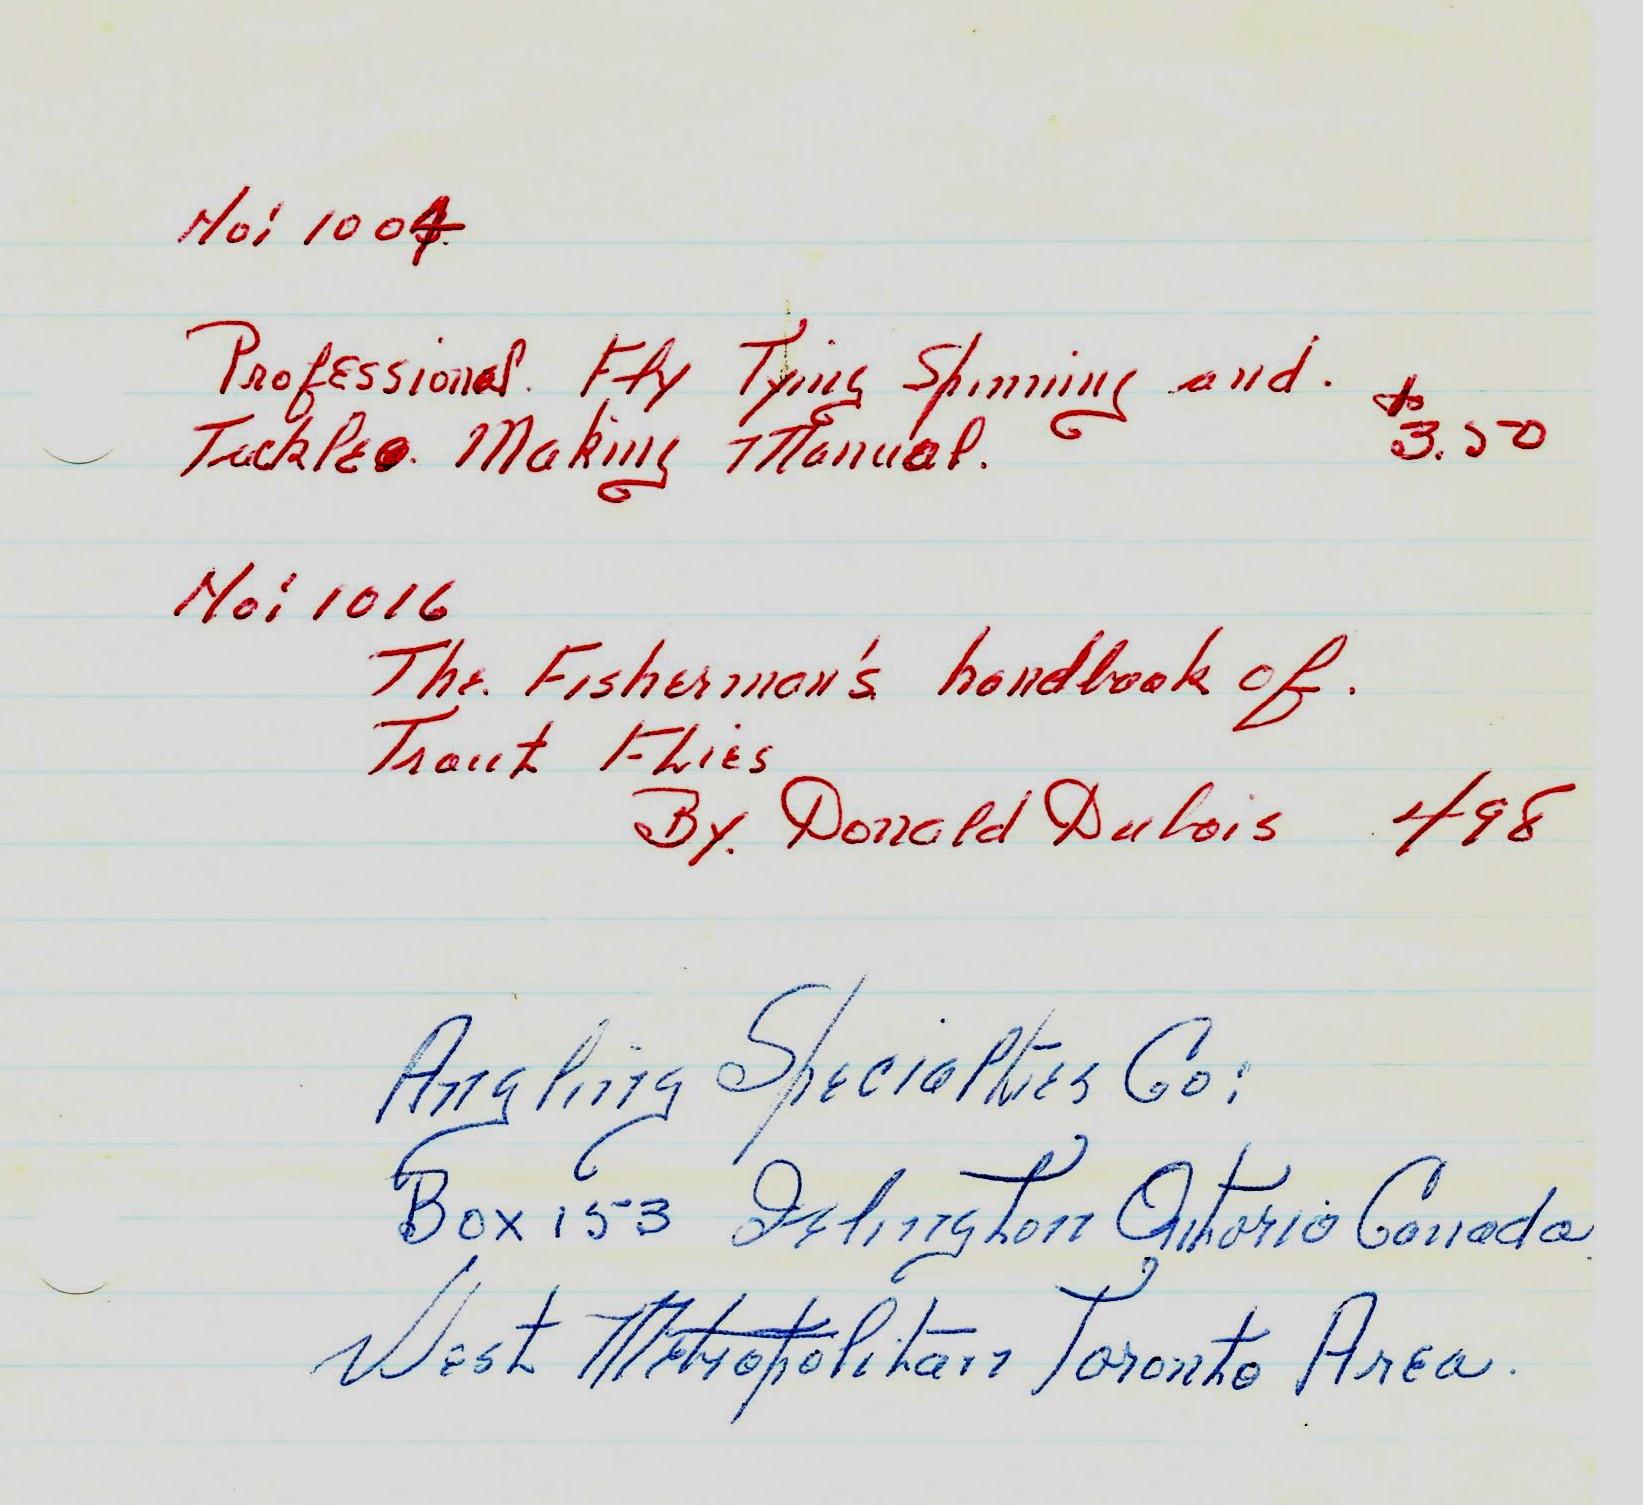 No: 1004
Professional. Fly Tying Spinning and.
Tackle. Making Manual. $3.50
No: 1016
The. Fisherman's handbook of.
Trout Flies
By. Donald Dubois 498
Angling Specialties Co:
Box 153 Islington Ontario Canada
West Metropolitan Toronto Area.